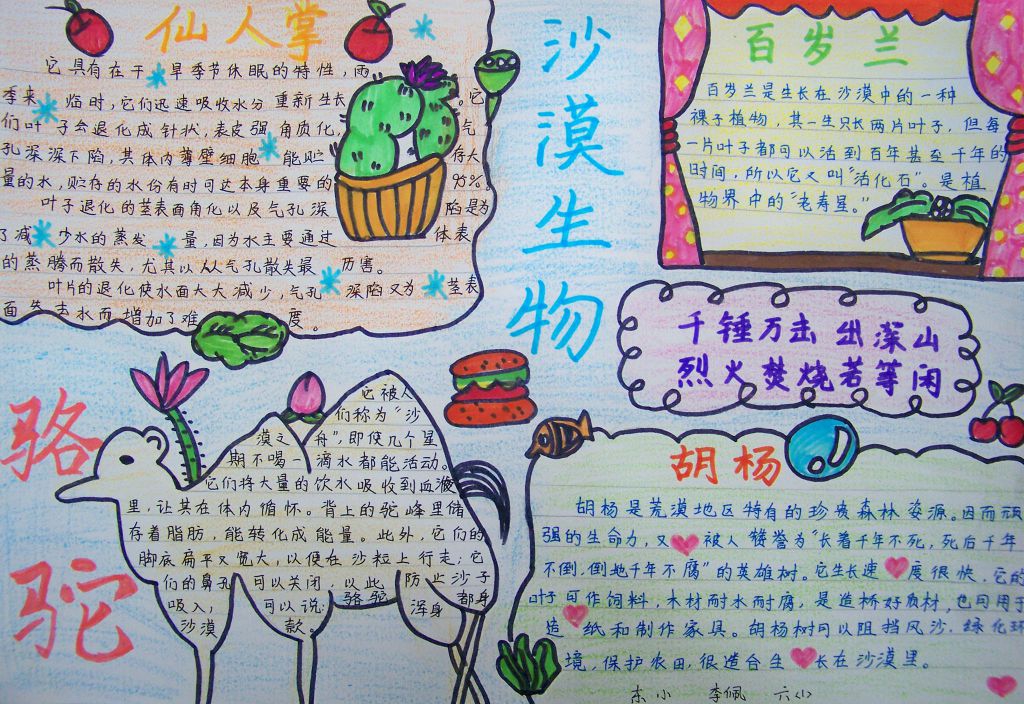 仙人掌
它具有在干旱季节休眠的特性，雨
季来临时，它们迅速吸收水分重新生长。它
们叶子会退化成针状，表皮强角质化，气
孔深深下陷，其体内薄壁细胞能贮存大
量的水，贮存的水份有时可达本身重要的95%。
叶子退化的茎表面角化以及气孔深陷是为
了减少水的蒸发量，因为水主要通过体表
的蒸腾而散失，尤其以从气孔散失最历害。
叶片的退化使水面大大减少，气孔深陷又为茎表
面失去水而增加了难度。
沙漠生物
百岁兰
百岁兰是生长在沙漠中的一种
裸子植物，其一生只长两片叶子，但每
一片叶子都可以活到百年甚至千年的
时间，所以它又叫“活化石”。是植
物界中的“老寿星。”
千锤万击出深山
烈火焚烧若等闲
骆驼
它被人
们称为“沙
漠之舟”，即使几个星
期不喝一滴水都能活动。
它们将大量的饮水吸收到血液
里，让其在体内循怀。背上的驼峰里储
存着脂肪，能转化成能量。此外，它们的
脚底扁平又宽大，以便在沙粒上行走；它
们的鼻孔可以关闭，以此防止沙子
吸入，可以说：骆驼浑身都身
沙漠款。
胡杨
胡杨是荒漠地区特有的珍贵森林姿源。因而顽
强的生命力，又被人赞誉为“长着千年不死，死后千年
不倒，倒地千年不腐”的英雄树。它生长速度很快，它的
叶子可作饲料，木材耐水耐腐，是造桥好质材，也可用于
造纸和制作家具。胡杨树可以阻挡风沙，绿化环
境，保护农田，很适合生长在沙漠里。
李佩 六(1)